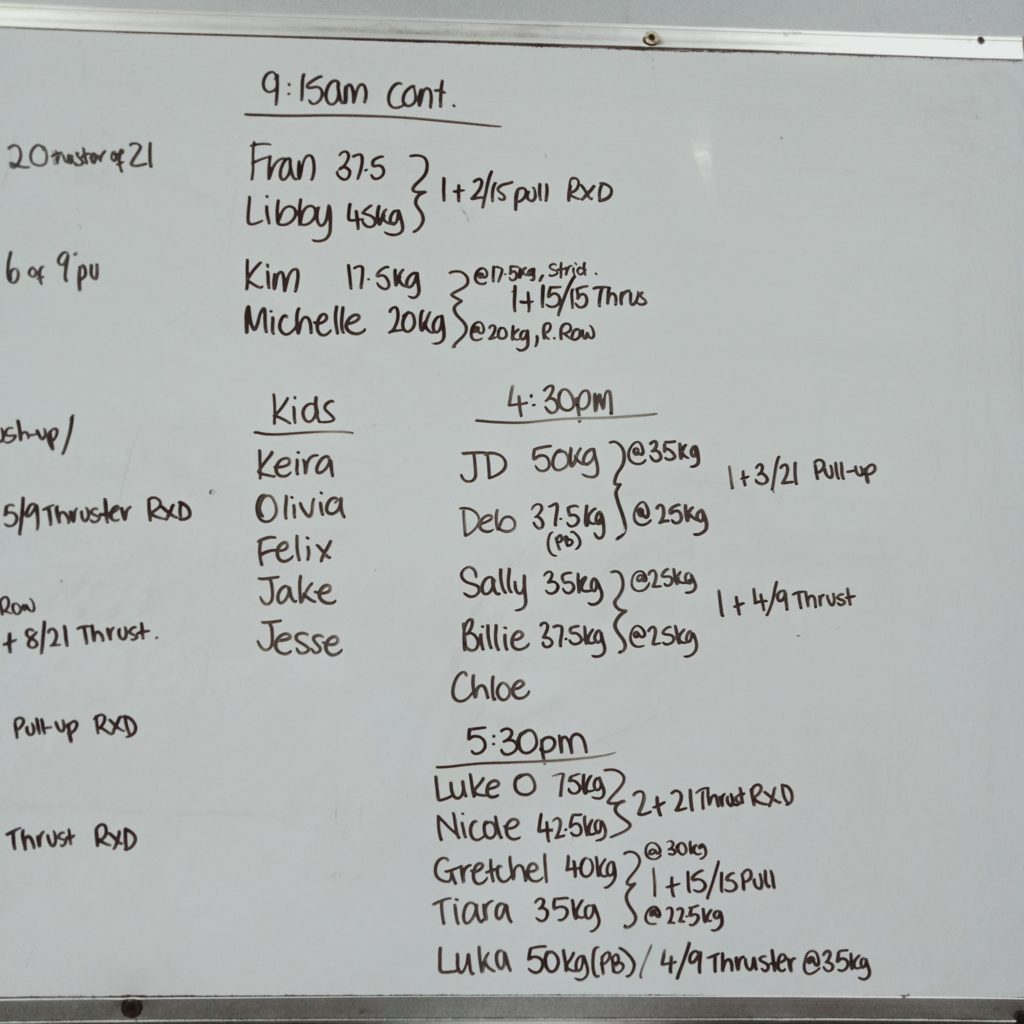 9:15am cont.
20 thruster of 21
Fran 37.5
Libby 45kg
1+2/15 pull RXD
6 of 9 pu
Kim 17.5kg
Michelle 20kg
@17.5kg, Strid.
1+15/15 Thrus
@20kg, R.Row
ush-up/
5/9 Thruster RXD
Row
+ 8/21 Thrust.
Pull-up RXD
Thrust RXD
Kids
Keira
Olivia
Felix
Jake
Jesse
4:30pm
JD 50kg @35kg
1+3/21 Pull-up
Deb 37.5kg @25kg
(PB)
Sally 35kg @25kg
1+4/9 Thrust
Billie 37.5kg @25kg
Chloe
5:30pm
Luke O 75kg
2+21 Thrust RXD
Nicole 42.5kg
Gretchel 40kg @30kg
1+15/15 Pull
Tiara 35kg @22.5kg
Luka 50kg (PB) / 4/9 Thruster @35kg